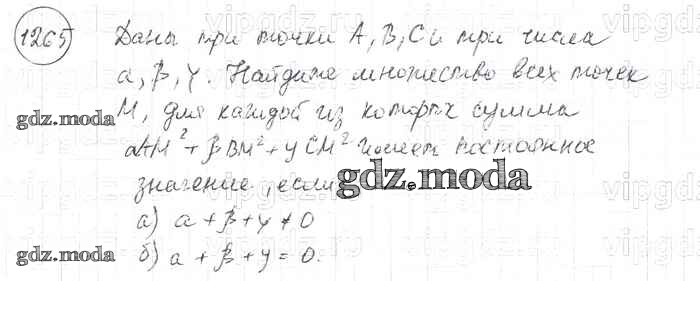 1265 Даны три точки A, B, C и три числа
α, β, γ. Найдите множество всех точек
M, для каждой из которых сумма
gdz.moda
αAM² + βBM² + γCM² имеет постоянное
значение, если
gdz.moda
а) α + β + γ ≠ 0
gdz.moda
б) α + β + γ = 0.